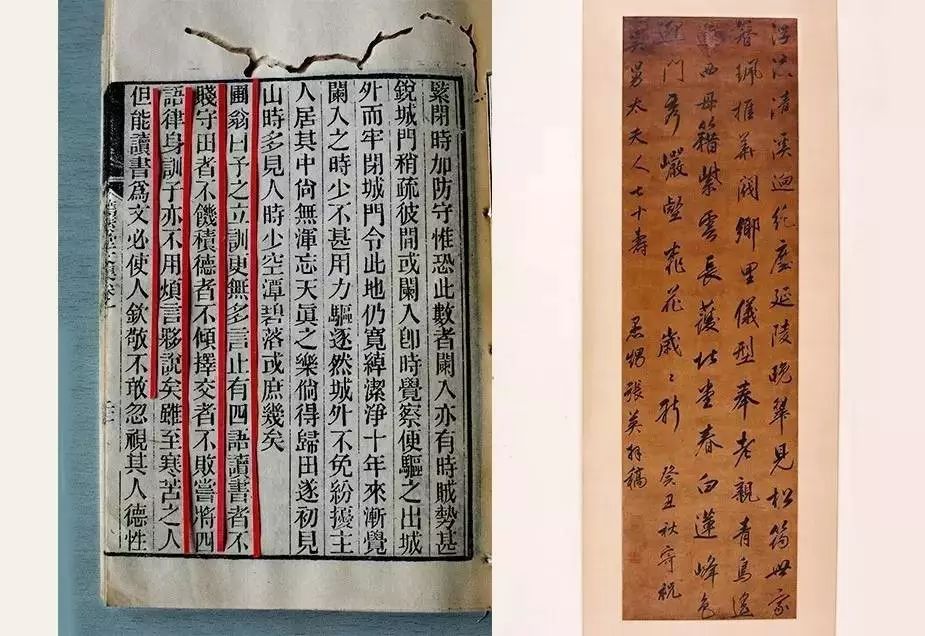 緊閉時加防守惟恐此數者闌入亦有時賊勢甚
銳城門稍疏彼間或闌入卽時覺察便驅之出城
外而牢閉城門令此地仍寬綽潔淨十年來漸覺
闌入之時少不甚用力驅逐然城外不免紛擾主
人居其中尙無渾忘天眞之樂倘得歸田遂初見
山時多見人時少空潭碧落或庶幾矣
圃翁曰予之立訓更無多言止有四語讀書者不
賤守田者不饑積德者不傾擇交者不敗嘗將四
語律身訓子亦不用煩言夥說矣雖至寒苦之人
但能讀書爲文必使人欽敬不敢忽視其人德性
清溪迴絕塵延陵晚翠見松筠世家
簪珮推華閥鄉里儀型奉老親青鳥遙
西母籍紫雲長護北堂春白蓮峰色
迎門秀巖壑花歲歲新 癸丑秋寄祝
吳舅太夫人七十壽 愚甥張英拜稿